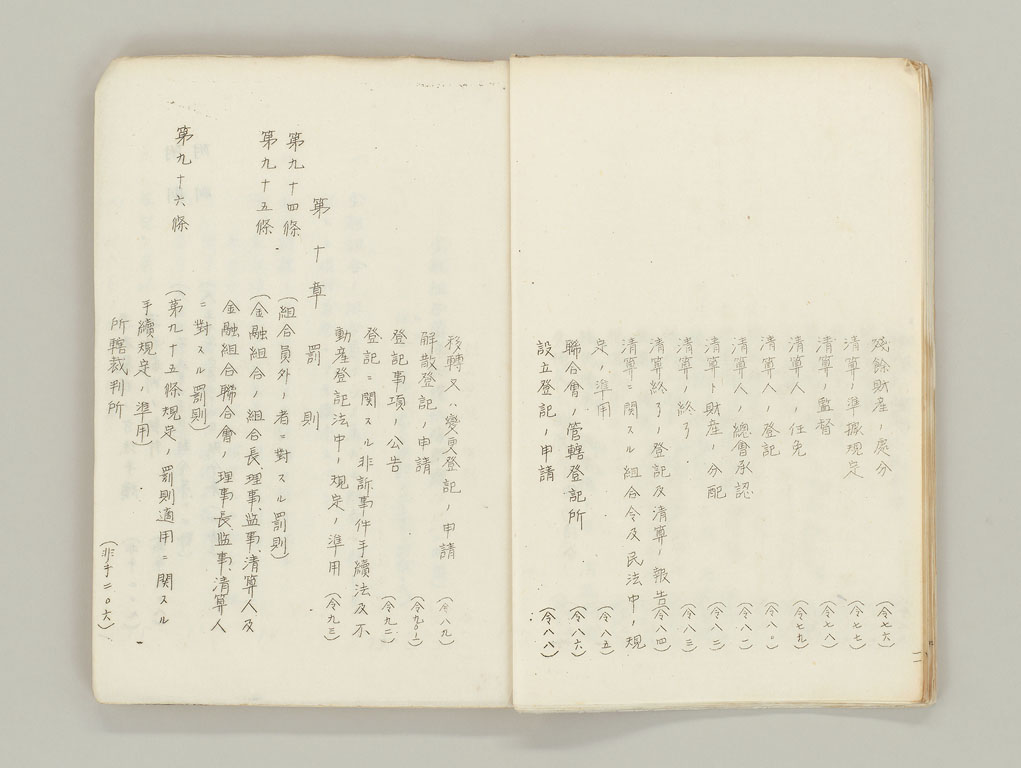 殘餘財産ノ處分 (令七六)
清算ノ準據規定 (令七七)
清算ノ監督 (令七八)
清算人ノ任免 (令七九)
清算人ノ登記 (令八〇)
清算人ノ總會承認 (令八一)
清算ト財産ノ分配 (令八二)
清算ノ終了 (令八三)
清算終了ノ登記及清算ノ報告 (令八四)
清算ニ關スル組合令及民法中ノ規
定ノ準用 (令八五)
聯合會ノ管轄登記所 (令八六)
設立登記ノ申請 (令八八)
移轉又ハ變更登記ノ申請 (令八九)
解散登記ノ申請 (令九〇ノ一)
登記事項ノ公告 (令九二)
登記ニ關スル非訴事件手續法及不
動産登記法中ノ規定ノ準用 (令九三)
第十章 罰則
第九十四條 (組合員外ノ者ニ對スル罰則)
第九十五條 (金融組合ノ組合長、理事、監事、清算人及
金融組合聯合會ノ理事長、監事、清算人
ニ對スル罰則)
第九十六條 (第九十五條規定ノ罰則適用ニ關スル
手續規定ノ準用)
所轄裁判所 (非手二〇六)